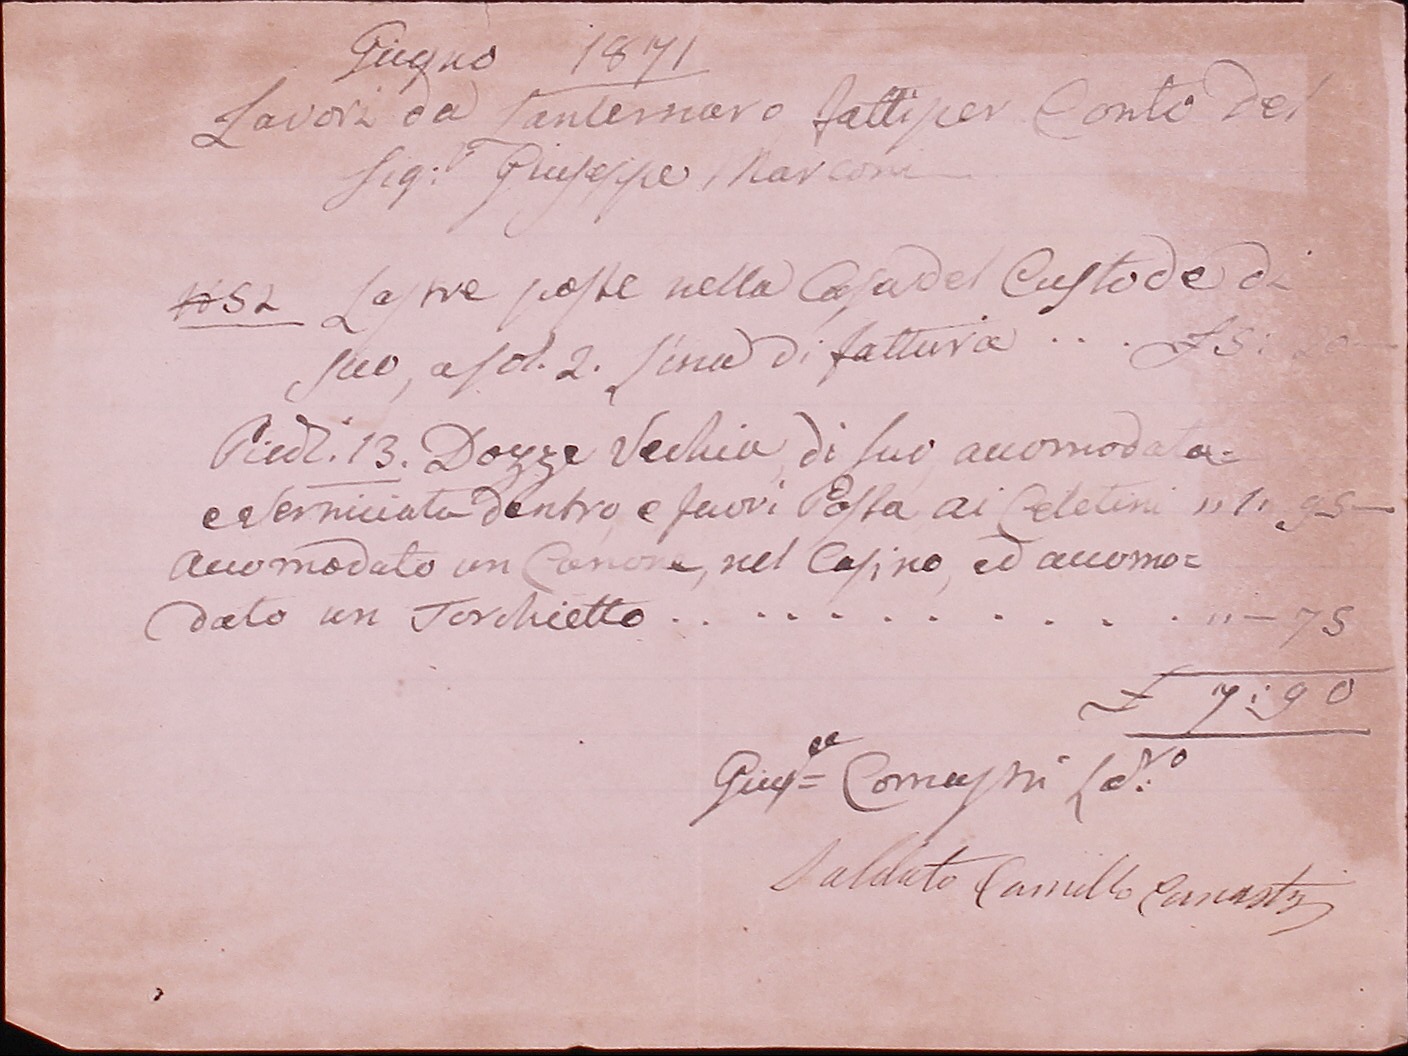 Giugno 1871
Lavori da Lanternaro fatti per Conto del
Sig.r Giuseppe Marconi
N 52 Lastre poste nella Casa del Custode di
suo, a sol. 2. l'una di fattura . . . . £ 5: 20
Piedi. 13. Dozza Vechia, di suo, accomodata=
e Verniciata dentro, e fuori Posta ai Celetini " 1" 95
Accomodato un Canone, nel Casino, ed accomo=
dato un Torchietto . . . . . . . . . . . . " — 75
£ 7:90
Gius=pe Comastri L
Saldato Camillo Comastri